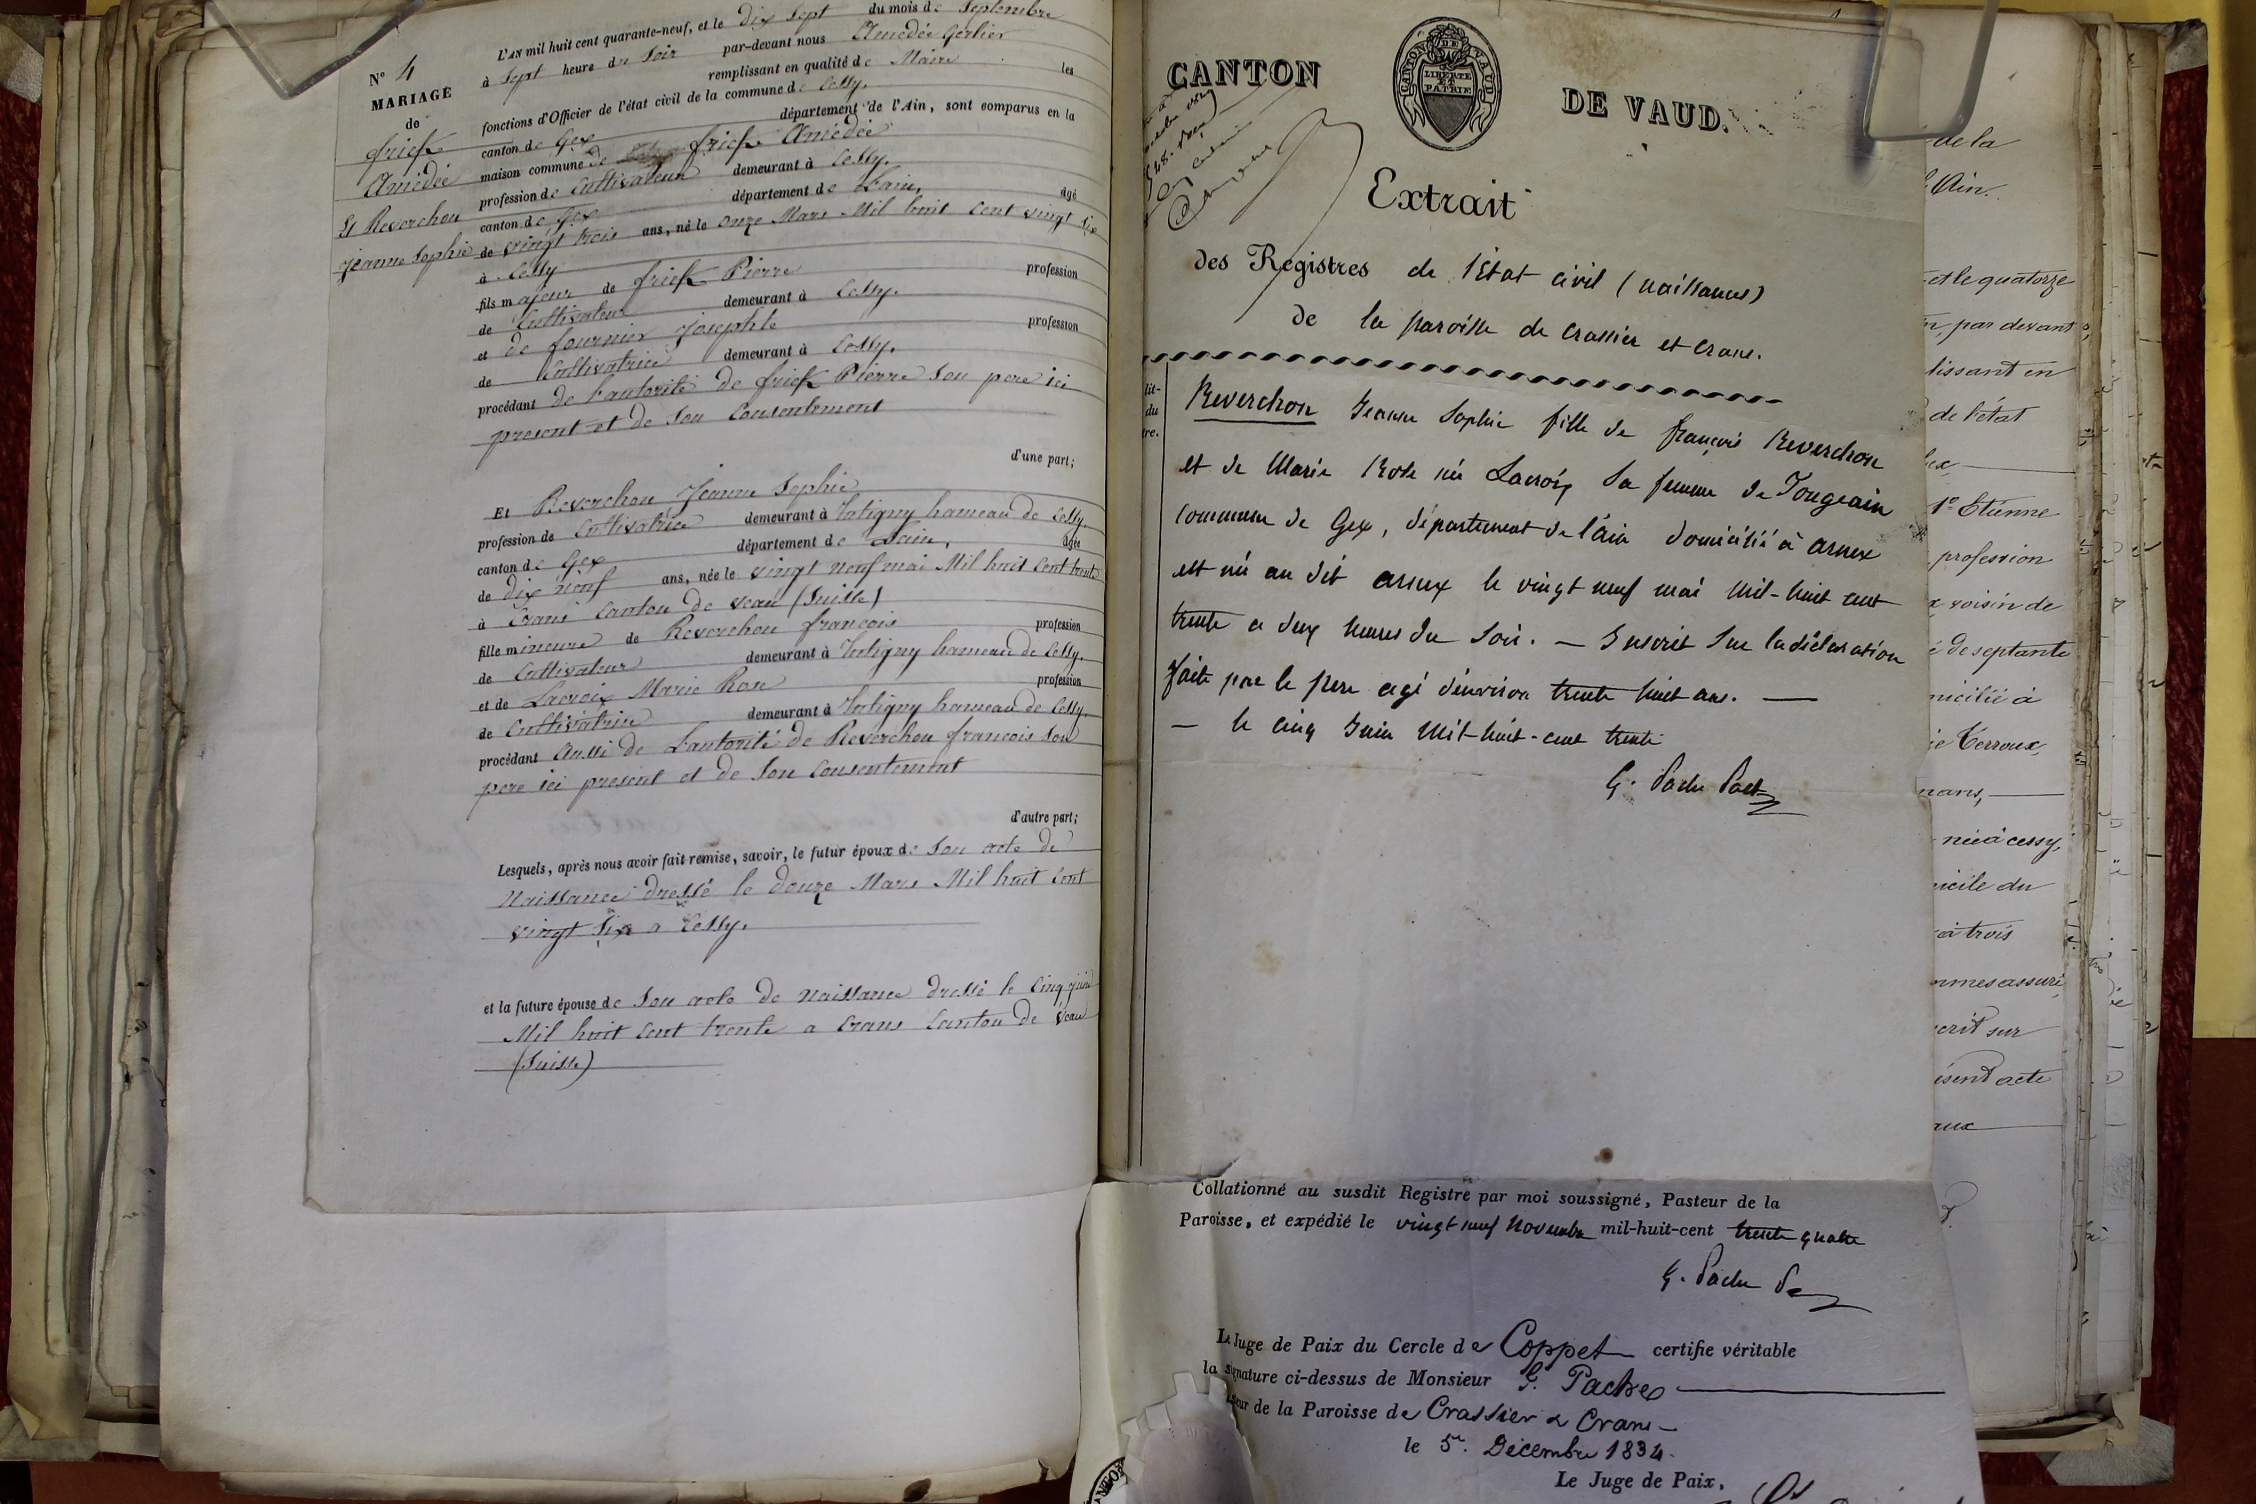 L'AN mil huit cent quarante-neuf, et le dix sept du mois de Septembre
à sept heure du Soir par-devant nous Amédée Gerlier
remplissant en qualité de Maire les
fonctions d'Officier de l'état civil de la commune de Cessy,
canton de Gex département de l'Ain, sont comparus en la
maison commune de frick Amédée
profession de Cultivateur demeurant à Cessy,
canton de Gex département de L'ain, âgé
de vingt trois ans, né le onze Mars Mil huit cent vingt six
à Cessy
fils majeur de frick Pierre profession
de Cultivateur demeurant à Cessy,
et de fournier Josephte profession
de Cultivatrice demeurant à Cessy,
procédant de L'autorité de frick Pierre Son pere ici
present et de Son Consentement
d'une part;
Et Reverchon Jeanne Sophie
profession de Cultivatrice demeurant à Tutigny hameau de Cessy
canton de Gex département de L'ain, âgée
de dix neuf ans, née le vingt neuf mai Mil huit Cent trente
à Crans Canton de veau (Suisse)
fille mineure de Reverchon françois profession
de Cultivateur demeurant à Tutigny hameau de Cessy,
et de Lacroix Marie Rose profession
de Cultivatrice demeurant à Tutigny hameau de Cessy,
procédant Aussi de L'autorité de Reverchon francois Son
pere ici present et de Son Consentement
d'autre part;
Lesquels, après nous avoir fait remise, savoir, le futur époux de Son acte de
Naissance dressé le douze Mars Mil huit Cent
vingt Six a Cessy.
et la future épouse de Son acte de Naissance dressé le Cinq juin
Mil huit Cent trente a Crans Canton de Veau
(Suisse)
N° 4
MARIAGE
de
frick
Amédée
Et Reverchon
Jeanne Sophie
CANTON DE VAUD.
CANTON DE VAUD
LIBERTÉ
ET
PATRIE
Extrait
des Registres de l'Etat civil (naissances)
de la paroisse de Crassier et Crans.
du
Reverchon Jeanne Sophie fille de françois Reverchon
et de Marie Rose née Lacroix sa femme de Tougeain
commune de Gex, département de l'ain domicilié à arnex
est née au dit arnex le vingt neuf mai mil-huit cent
trente a deux heures du soir. — Inscrit sur la déclaration
faite par le pere agé d'environ trente huit ans. —
— le cinq Juin Mil-huit-cent trente
G. Pache Past
Collationné au susdit Registre par moi soussigné, Pasteur de la
Paroisse, et expédié le vingt neuf Novembre mil-huit-cent trente quatre
G. Pache
Le Juge de Paix du Cercle de Coppet certifie véritable
la signature ci-dessus de Monsieur G. Pache
de la Paroisse de Crassier & Crans
le 5e. Décembre 1834.
Le Juge de Paix,
de la
l'Ain.
et le quatorze
par devant
lissant en
de l'état
1° Etienne
profession
voisin de
de septante
micilié à
Terroux,
née à cessy,
icile du
à trois
mmes assuré
crit sur
ésent acte